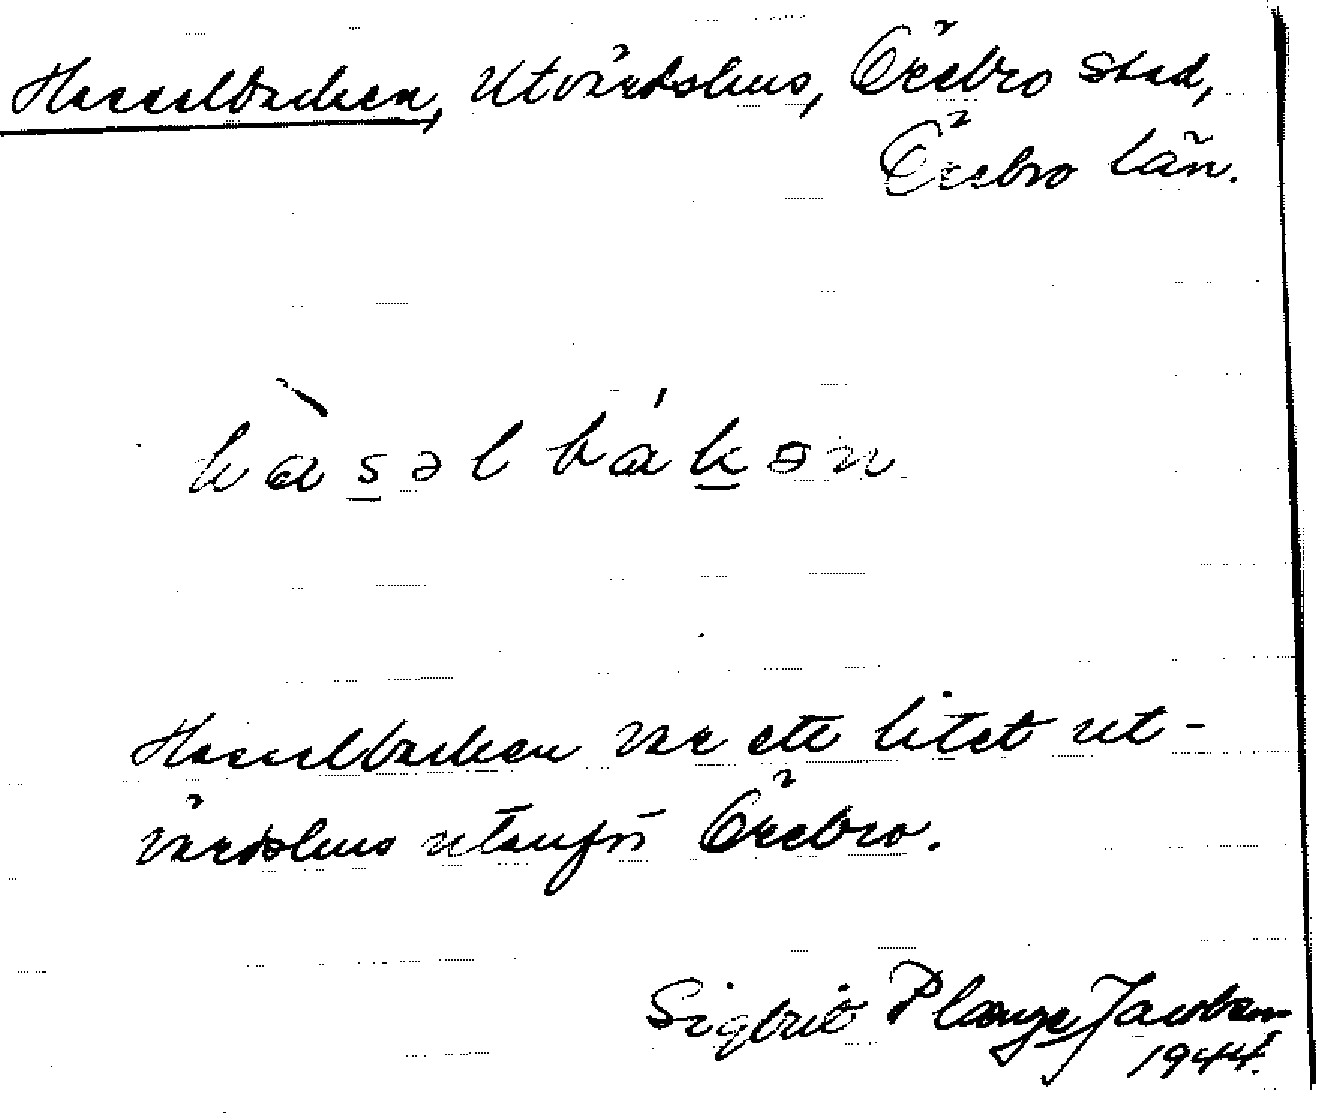 Hasselbacken, Utvärdshus, Örebro stad,
Örebro län.
hàsəlbákən
Hasselbacken var ett litet ut-
värdshus utanför Örebro.
Sigbrit Plænge Jacobson
1944.